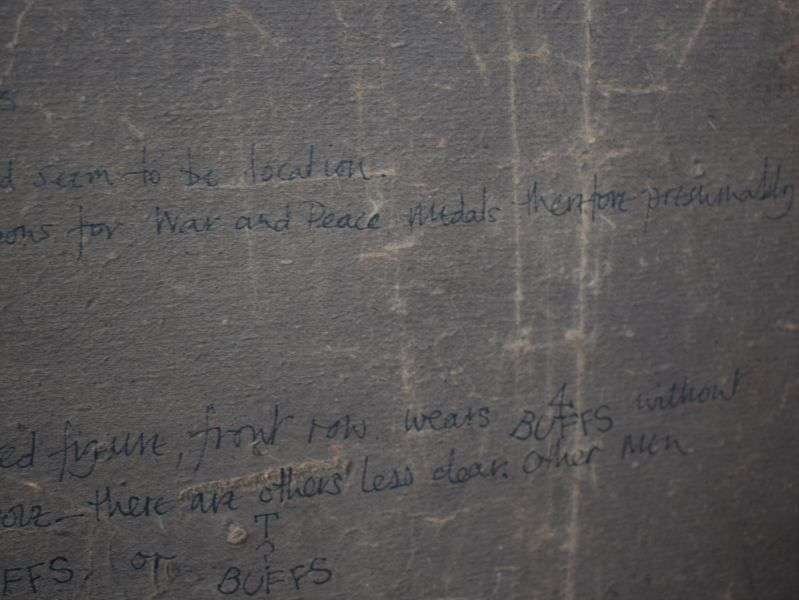 s
d seem to be location.
ons for War and Peace Medals therefore presumably
ed figure, front row wears 4 BUFFS without
there are others less clear. Other men
T
?
FFS. or BUFFS